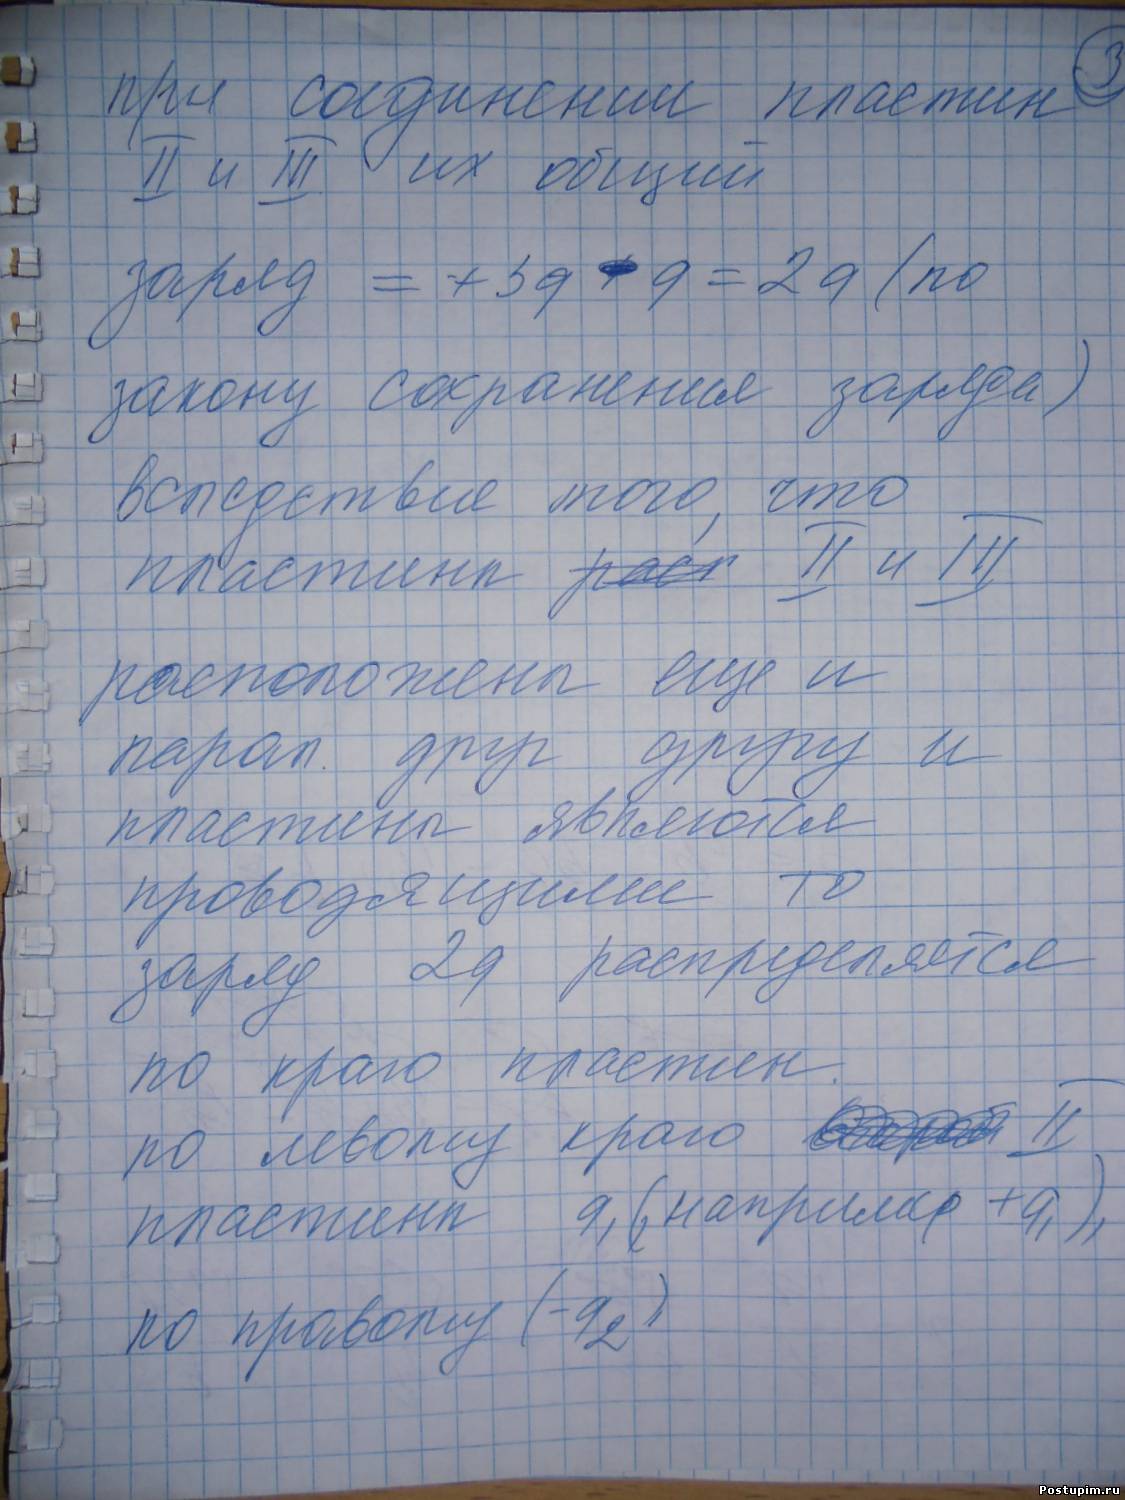 3
при соединении пластин
II и III их общий
заряд = +3q - q = 2q (по
закону сохранения заряда)
вследствие того, что
пластины II и III
расположены еще и
парал. друг другу и
пластины являются
проводящими то
заряд 2q распределяется
по краю пластин.
по левому краю II
пластины q₁ (например +q₁),
по правому (-q₂)
Postupim.ru